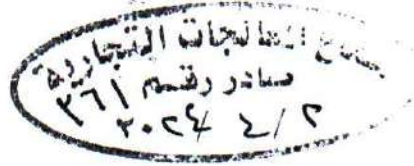 قطاع المعالجات التجارية
صادر رقم
٣٦١
٢٠٢٤ ٤/٢